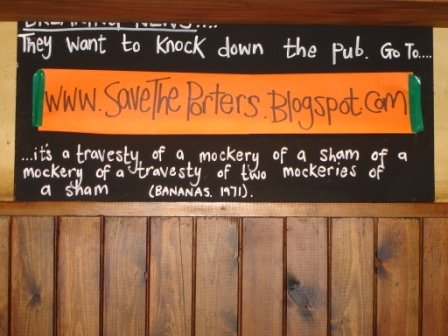 BREAKING NEWS....
They want to knock down the pub. Go To....
www.SaveThePorters.Blogspot.com
...it's a travesty of a mockery of a sham of a
mockery of a travesty of two mockeries of
a sham (BANANAS, 1971).